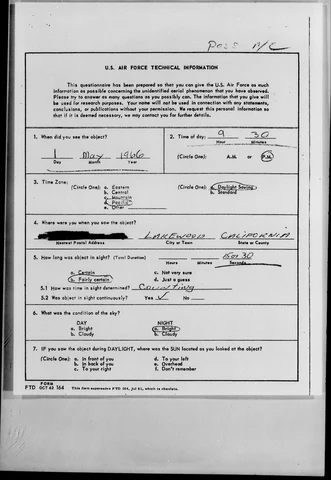 Poss A/C
U.S. AIR FORCE TECHNICAL INFORMATION
This questionnaire has been prepared so that you can give the U.S. Air Force as much
information as possible concerning the unidentified aerial phenomenon that you have observed.
Please try to answer as many questions as you possibly can. The information that you give will
be used for research purposes. Your name will not be used in connection with any statements,
conclusions, or publications without your permission. We request this personal information so
that if it is deemed necessary, we may contact you for further details.
1. When did you see the object?
1 May 1966
Day Month Year
2. Time of day: 9 30
Hour Minutes
(Circle One): A.M. or P.M.
3. Time Zone:
(Circle One): a. Eastern
b. Central
c. Mountain
d. Pacific
e. Other
(Circle One): a. Daylight Saving
b. Standard
4. Where were you when you saw the object?
LAKEWOOD CALIFORNIA
Nearest Postal Address City or Town State or County
5. How long was object in sight? (Total Duration)
30
Hours Minutes Seconds
a. Certain c. Not very sure
b. Fairly certain d. Just a guess
5.1 How was time in sight determined? Counting
5.2 Was object in sight continuously? Yes ✓ No
6. What was the condition of the sky?
DAY NIGHT
a. Bright a. Bright
b. Cloudy b. Cloudy
7. IF you saw the object during DAYLIGHT, where was the SUN located as you looked at the object?
(Circle One): a. In front of you d. To your left
b. In back of you e. Overhead
c. To your right f. Don't remember
FORM
FTD OCT 62 164 This form supersedes FTD 164, Jul 61, which is obsolete.